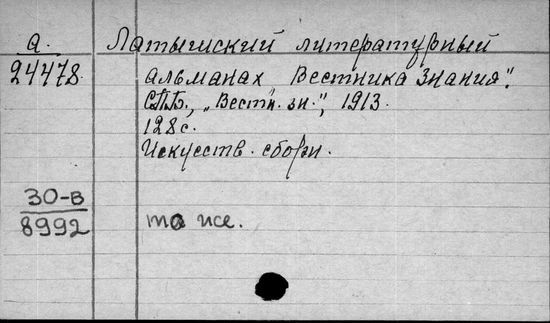 а. Латышский литературный
24478. альманах Вестника Знания".
СПБ., „Вестн. зн.", 1913.
128 с.
Искусств. сборн.
30-в
8992 то же.